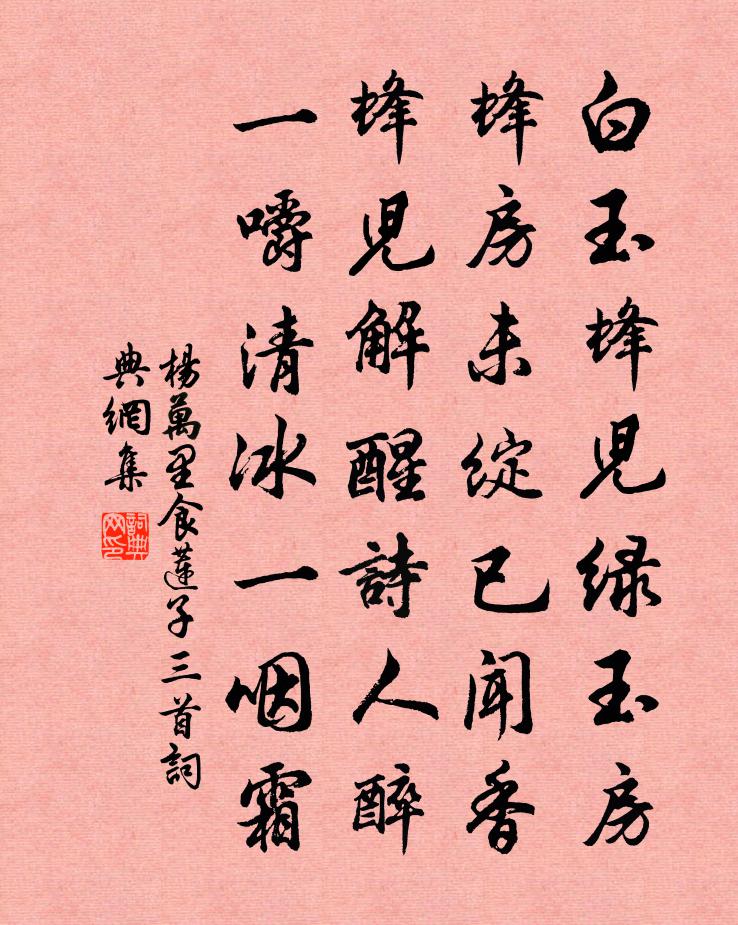 白玉蜂児緑玉房
蜂房未綻已聞香
蜂児解醒詩人醉
一嚼清冰一咽霜
楊萬里食蓮子三首詞
典網集
詞典网印